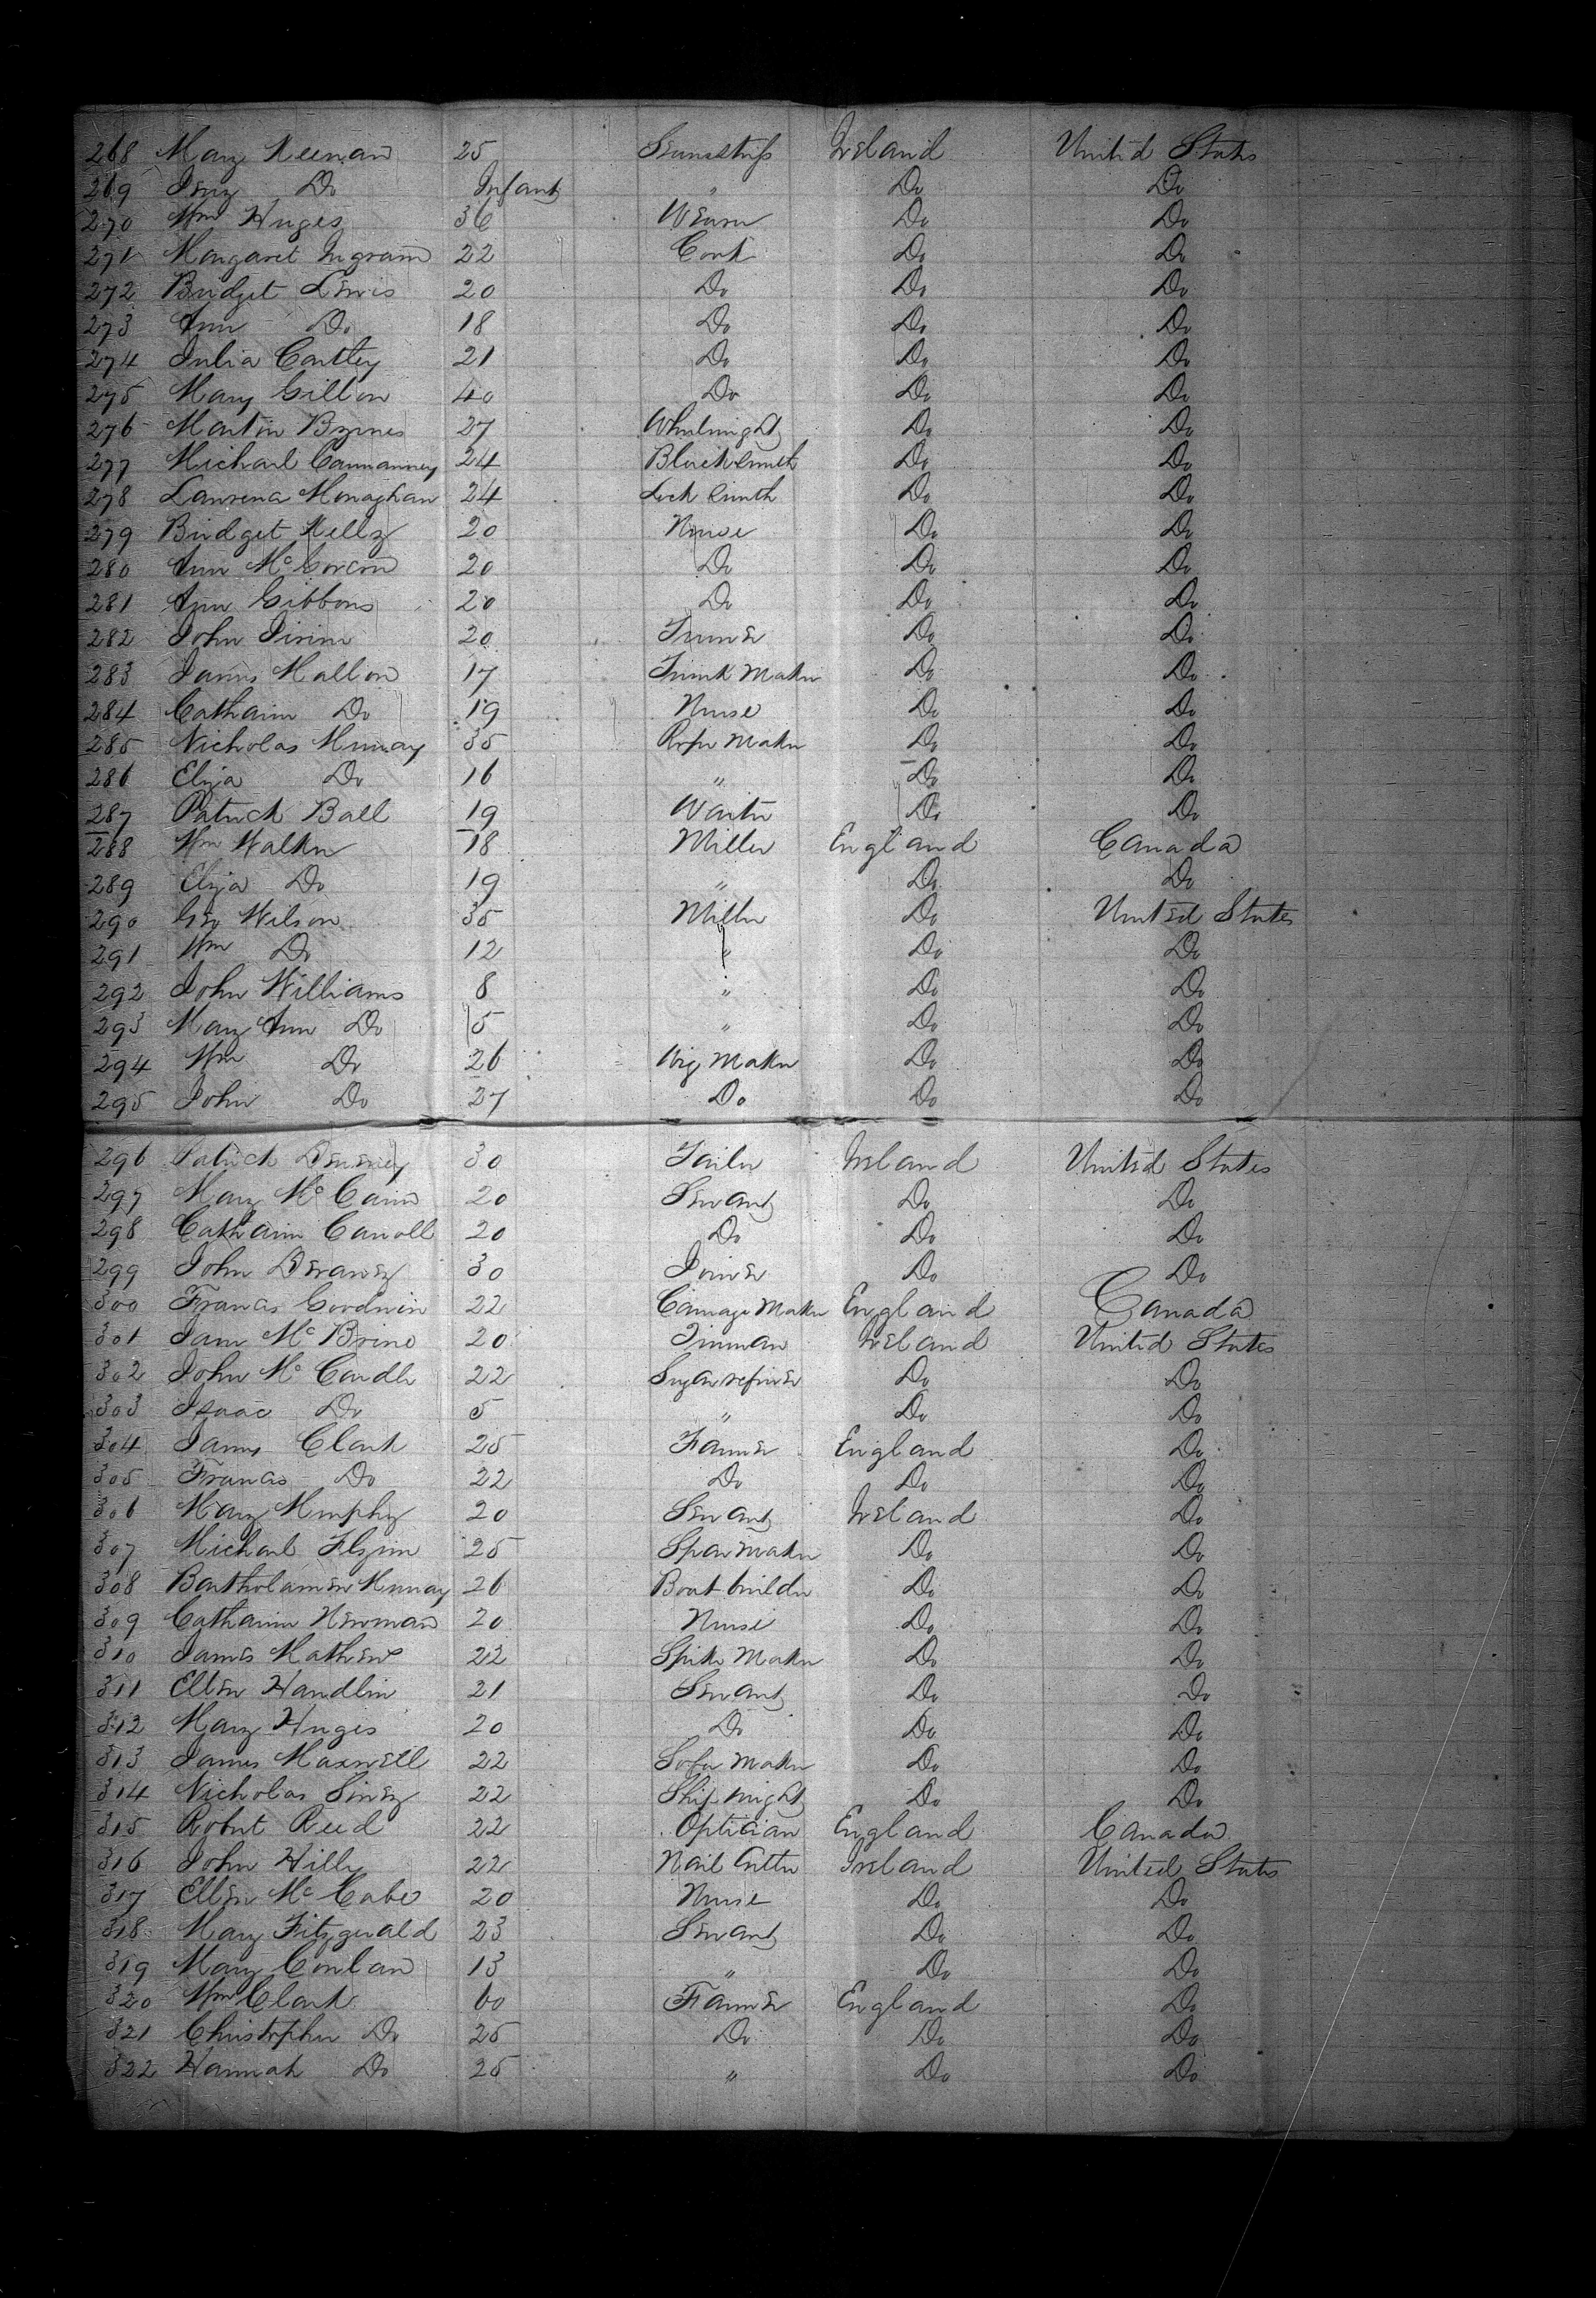 268 Mary Keenan 25 Seamstress Ireland United States
269 Jeny Do Infant " Do Do
270 Wm Huges 36 Weaver Do Do
271 Margaret Ingram 22 Cook Do Do
272 Bridget Lewis 20 Do Do Do
273 Ann Do 18 Do Do Do
274 Julia Cartley 21 Do Do Do
275 Mary Gillon 40 Do Do Do
276 Martin Byrnes 27 Wheelwright Do Do
277 Michael 24 Blacksmith Do Do
278 Monaghan 24 Lock Smith Do Do
279 Bridget Kelly 20 Nurse Do Do
280 Ann 20 Do Do Do
281 Ann Gibbons 20 Do Do Do
282 John 20 Do Do
283 James Mallon 17 Trunk Maker Do Do
284 Catharine Do 19 Nurse Do Do
285 Nicholas Murray 35 Rope Maker Do Do
286 Eliza Do 16 " Do Do
287 Patrick Ball 19 Waiter Do Do
288 Wm Walker 18 Miller England Canada
289 Eliza Do 19 " Do Do
290 Geo Wilson 35 Miller Do United States
291 Wm Do 12 " Do Do
292 John Williams 8 " Do Do
293 Mary Ann Do 5 " Do Do
294 Wm Do 26 Wig Maker Do Do
295 John Do 27 Do Do Do
296 Patrick 30 Tailor Ireland United States
297 Mary McCann 20 Servant Do Do
298 Catharine Carroll 20 Do Do Do
299 John Devaney 30 Joiner Do Do
300 Francis Goodwin 22 Carriage Maker England Canada
301 Jane 20 Tinman Ireland United States
302 John McCardle 22 Sugar refiner Do Do
303 Isaac Do 5 " Do Do
304 James Clark 25 Farmer England Do
305 Francis Do 22 Do Do Do
306 Mary Murphy 20 Servant Ireland Do
307 Michael 25 Spar Maker Do Do
308 Bartholamew Murray 26 Boat builder Do Do
309 Catharine Newman 20 Nurse Do Do
310 James Mathews 22 Spike Maker Do Do
311 Ellen Handlin 21 Servant Do Do
312 Mary Huges 20 Do Do Do
313 James Maxwell 22 Sofa Maker Do Do
314 Nicholas 22 Ship wright Do Do
315 Robert Reed 22 Optician England Canada
316 John Hilly 22 Nail Cutter Ireland United States
317 Ellen McCabe 20 Nurse Do Do
318 Mary Fitzgerald 23 Servant Do Do
319 Mary Conlan 13 " Do Do
320 Wm Clark 60 Farmer England Do
321 Christopher Do 25 Do Do Do
322 Hannah Do 25 " Do Do